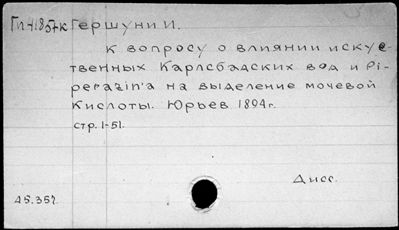 Гп.4.857к Гершуни И.
К вопросу о влиянии искус-
твенных Карлсбадских вод и Pi-
perazin'a на выделение мочевой
кислоты. Юрьев 1894г.
стр. 1-51.
Дисс.
А5.357.